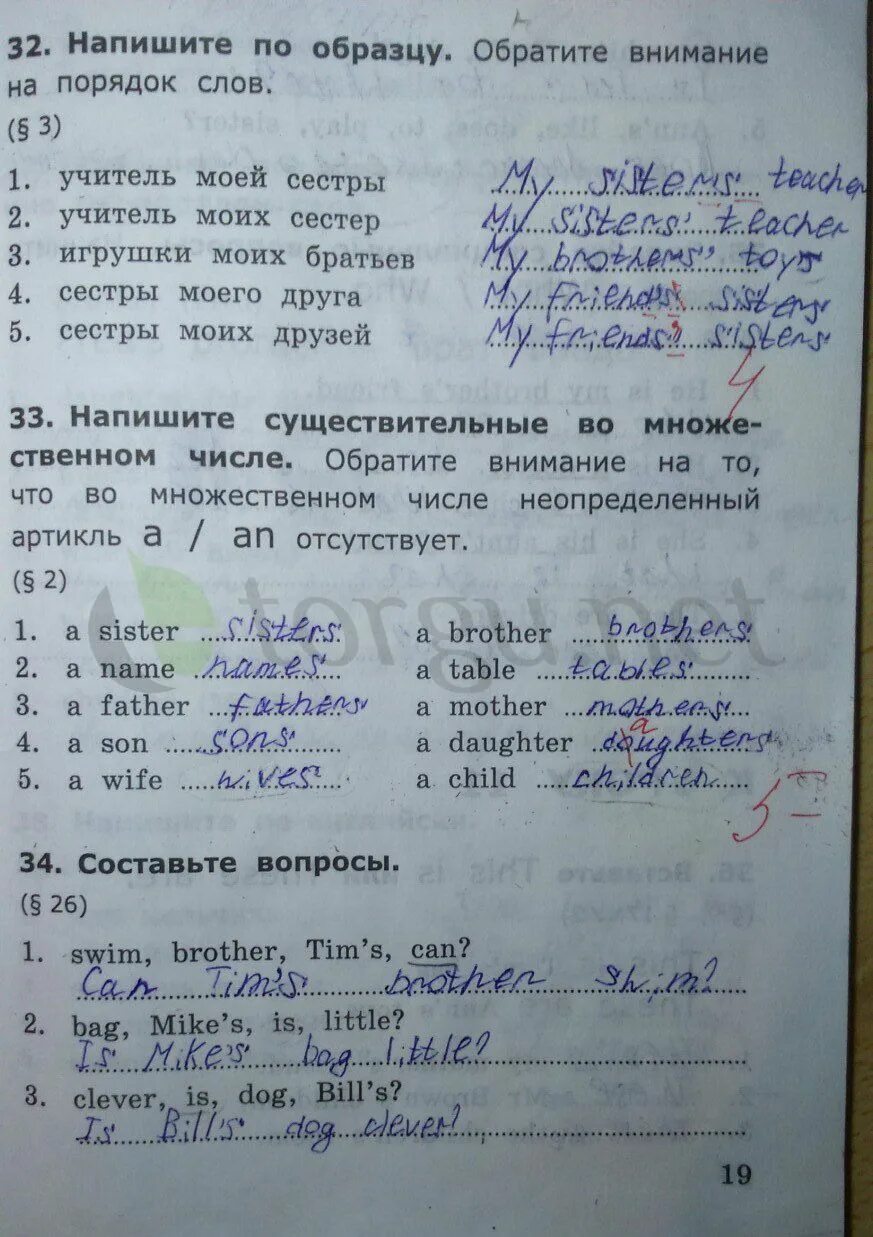 32. Напишите по образцу. Обратите внимание
на порядок слов.
(§ 3)
1. учитель моей сестры My sister's teacher
2. учитель моих сестер My sisters' teacher
3. игрушки моих братьев My brothers' toys
4. сестры моего друга My friend's sisters
5. сестры моих друзей My friends' sisters
4
33. Напишите существительные во множе-
ственном числе. Обратите внимание на то,
что во множественном числе неопределенный
артикль a / an отсутствует.
(§ 2)
etorgu.net
1. a sister sisters a brother brothers
2. a name names a table tables
3. a father fathers a mother mothers
4. a son sons a daughter daughters
5. a wife wives a child children
5-
34. Составьте вопросы.
(§ 26)
1. swim, brother, Tim's, can?
Can Tim's brother swim?
2. bag, Mike's, is, little?
Is Mike's bag little?
3. clever, is, dog, Bill's?
Is Bill's dog clever?
19